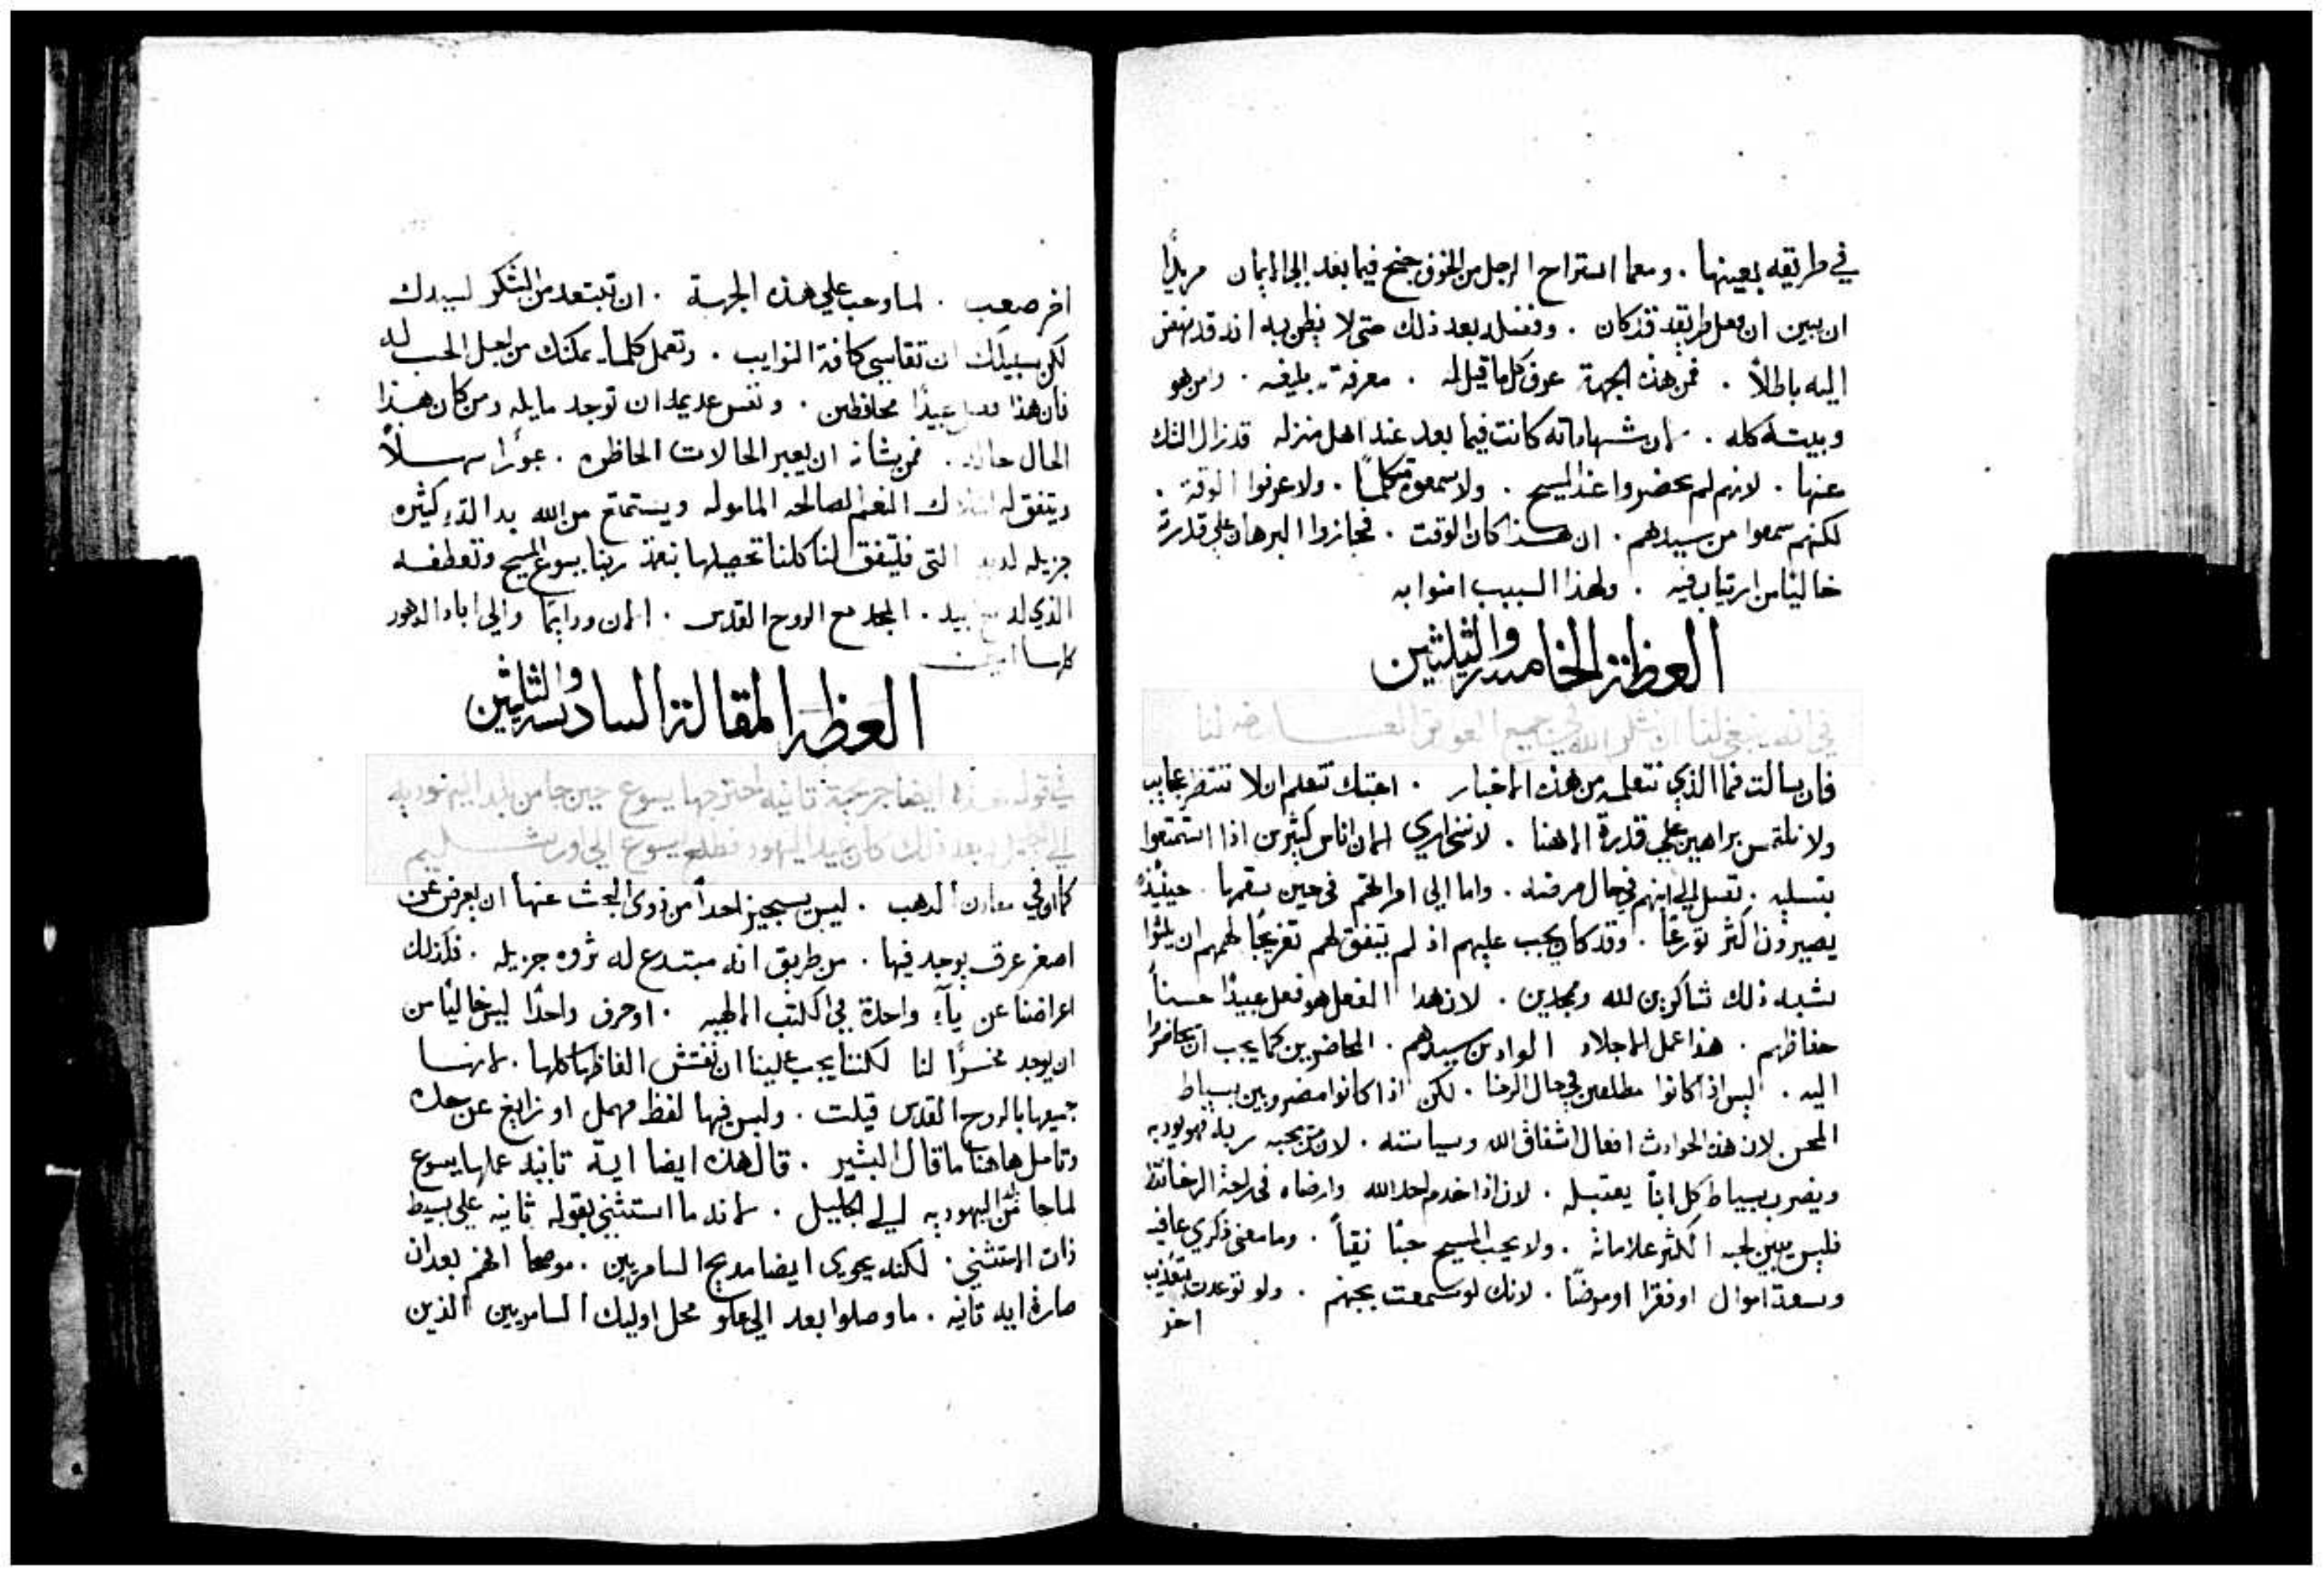 في طريقه بعينها . ومعما استراح الرجل من الخوف جنح فيما بعد الى الايمان مريدًا
ان يبين ان فعل طريقه قد كان . وفضله بعد ذلك حتى لا يظن به انه قد نهض
اليه باطلاً . فمن هذه الجهة عرف كل ما قيل له . معرفة بليغه . وامن هو
وبيته كله . لان شهاداته كانت فيما بعد عند اهل منزله قد زال الشك
عنها . لانهم لم يحضروا عند المسيح . ولا سمعوه متكلمًا . ولا عرفوا الوقت .
لكنهم سمعوا من سيدهم . ان هذا كان الوقت . فحازوا البرهان على قدرته
خاليًا من ارتياب فيه . ولهذا السبب امنوا به
العظة الخامسة والثلثين
في انه ينبغي لنا ان نشكر الله في جميع العوارض العارضه لنا
فان سالت فما الذي نتعلمه من هذه الاخبار . اجبتك نتعلم ان لا ننتظر عجايب
ولا نلتمس براهين على قدرة الاهنا . لانني ارى الان اناس كثيرين اذا استمتعوا
بتسليه . تصل الى ابنهم في حال مرضه . واما الى امراتهم في حين سقمها . حينيذٍ
يصيرون اكثر تورعًا . وقد كان يجب عليهم اذ لم يتفق لهم تفريجًا لهمهم ان يلبثوا
بشبه ذلك شاكرين لله وممجدين . لان هذا الفعل هو فعل عبيدًا حسنًا
حفاظهم . هذا عمل الاجلاد الوادين سيدهم . الحاضرين كما يجب ان يحاضروا
اليه . ليس اذ كانوا مطلعين في حال الرخا . لكن اذا كانوا مضروبين بسياط
المحن لان هذه الحوادث افعال اشفاق الله وسياسته . لان من يحبه ربه فهو يودبه
ويضرب بسياط كل ابنًا يقتبله . لان اذا خدم احد الله وارضاه في راحة الرخا فقط
فليس يبين لحبه اكثر علاماته . ولا يحب المسيح حبًا نقيًا . وما معنى ذكري عافيه
وسعة اموال او فقرا او مرضًا . لانك لو سمعت بجهنم . ولو توعدت بتعذيب
اخر
اخر صعب . لما وجب على هذه الجهة . ان تبتعد من الشكر لسيدك
لكن سبيلك ان تقاسي كافة النوايب . وتعمل كلما يمكنك من اجل الحب له
فان هذا فعل عبيدًا محافظين . ونفس عديمه ان توجد مايله ومن كان هذا
الحال حاله . فمن شانه ان يعبر الحالات الحاظره . عبورًا سهلاً
ويتفق له امتلاك النعم الصالحه الماموله ويستمتع من الله بدالة كثيره
جزيله لديه التى فليتفق لنا كلنا تحصيلها بنعمة ربنا يسوع المسيح وتعطفه
الذي له مع ابيه . المجد مع الروح القدس . الان ودايمًا والى اباد الدهور
كلها امين
العظه المقالة السادسه والثلثين
في قوله هذه ايضا جريحة ثانيه اجترحها يسوع حين جا من بلد اليهوديه
الى الجليل وبعد ذلك كان عيد اليهود فطلع يسوع الى اورشليم
كما في معادن الدهب . ليس يستجيز احدًا من ذوى البحث عنها ان يعرض عن
اصغر عرق يوجد فيها . من طريق انه مبتدع له ثروه جزيله . فكذلك
اعراضنا عن ياءٍ واحدة في الكتب الالهيه . او حرف واحدًا ليس خاليًا من
ان يوجد مخسرًا لنا لكننا يجب علينا ان نفتش الفاظها كلها . لانها
جميعها بالروح القدس قيلت . وليس فيها لفظ مهمل او زايغ عن حده
وتامل هاهنا ما قال البشير . قال هذه ايضا اية ثانيه عملها يسوع
لما جا من اليهوديه الى الجليل . لانه ما استثني بقوله ثانيه على بسيط
ذات الاستثني . لكنه يحوى ايضا مديح السامريين . موضحا انهم بعد ان
صارة ايه ثانيه . ما وصلوا بعد الى علو محل اوليك السامريين الذين